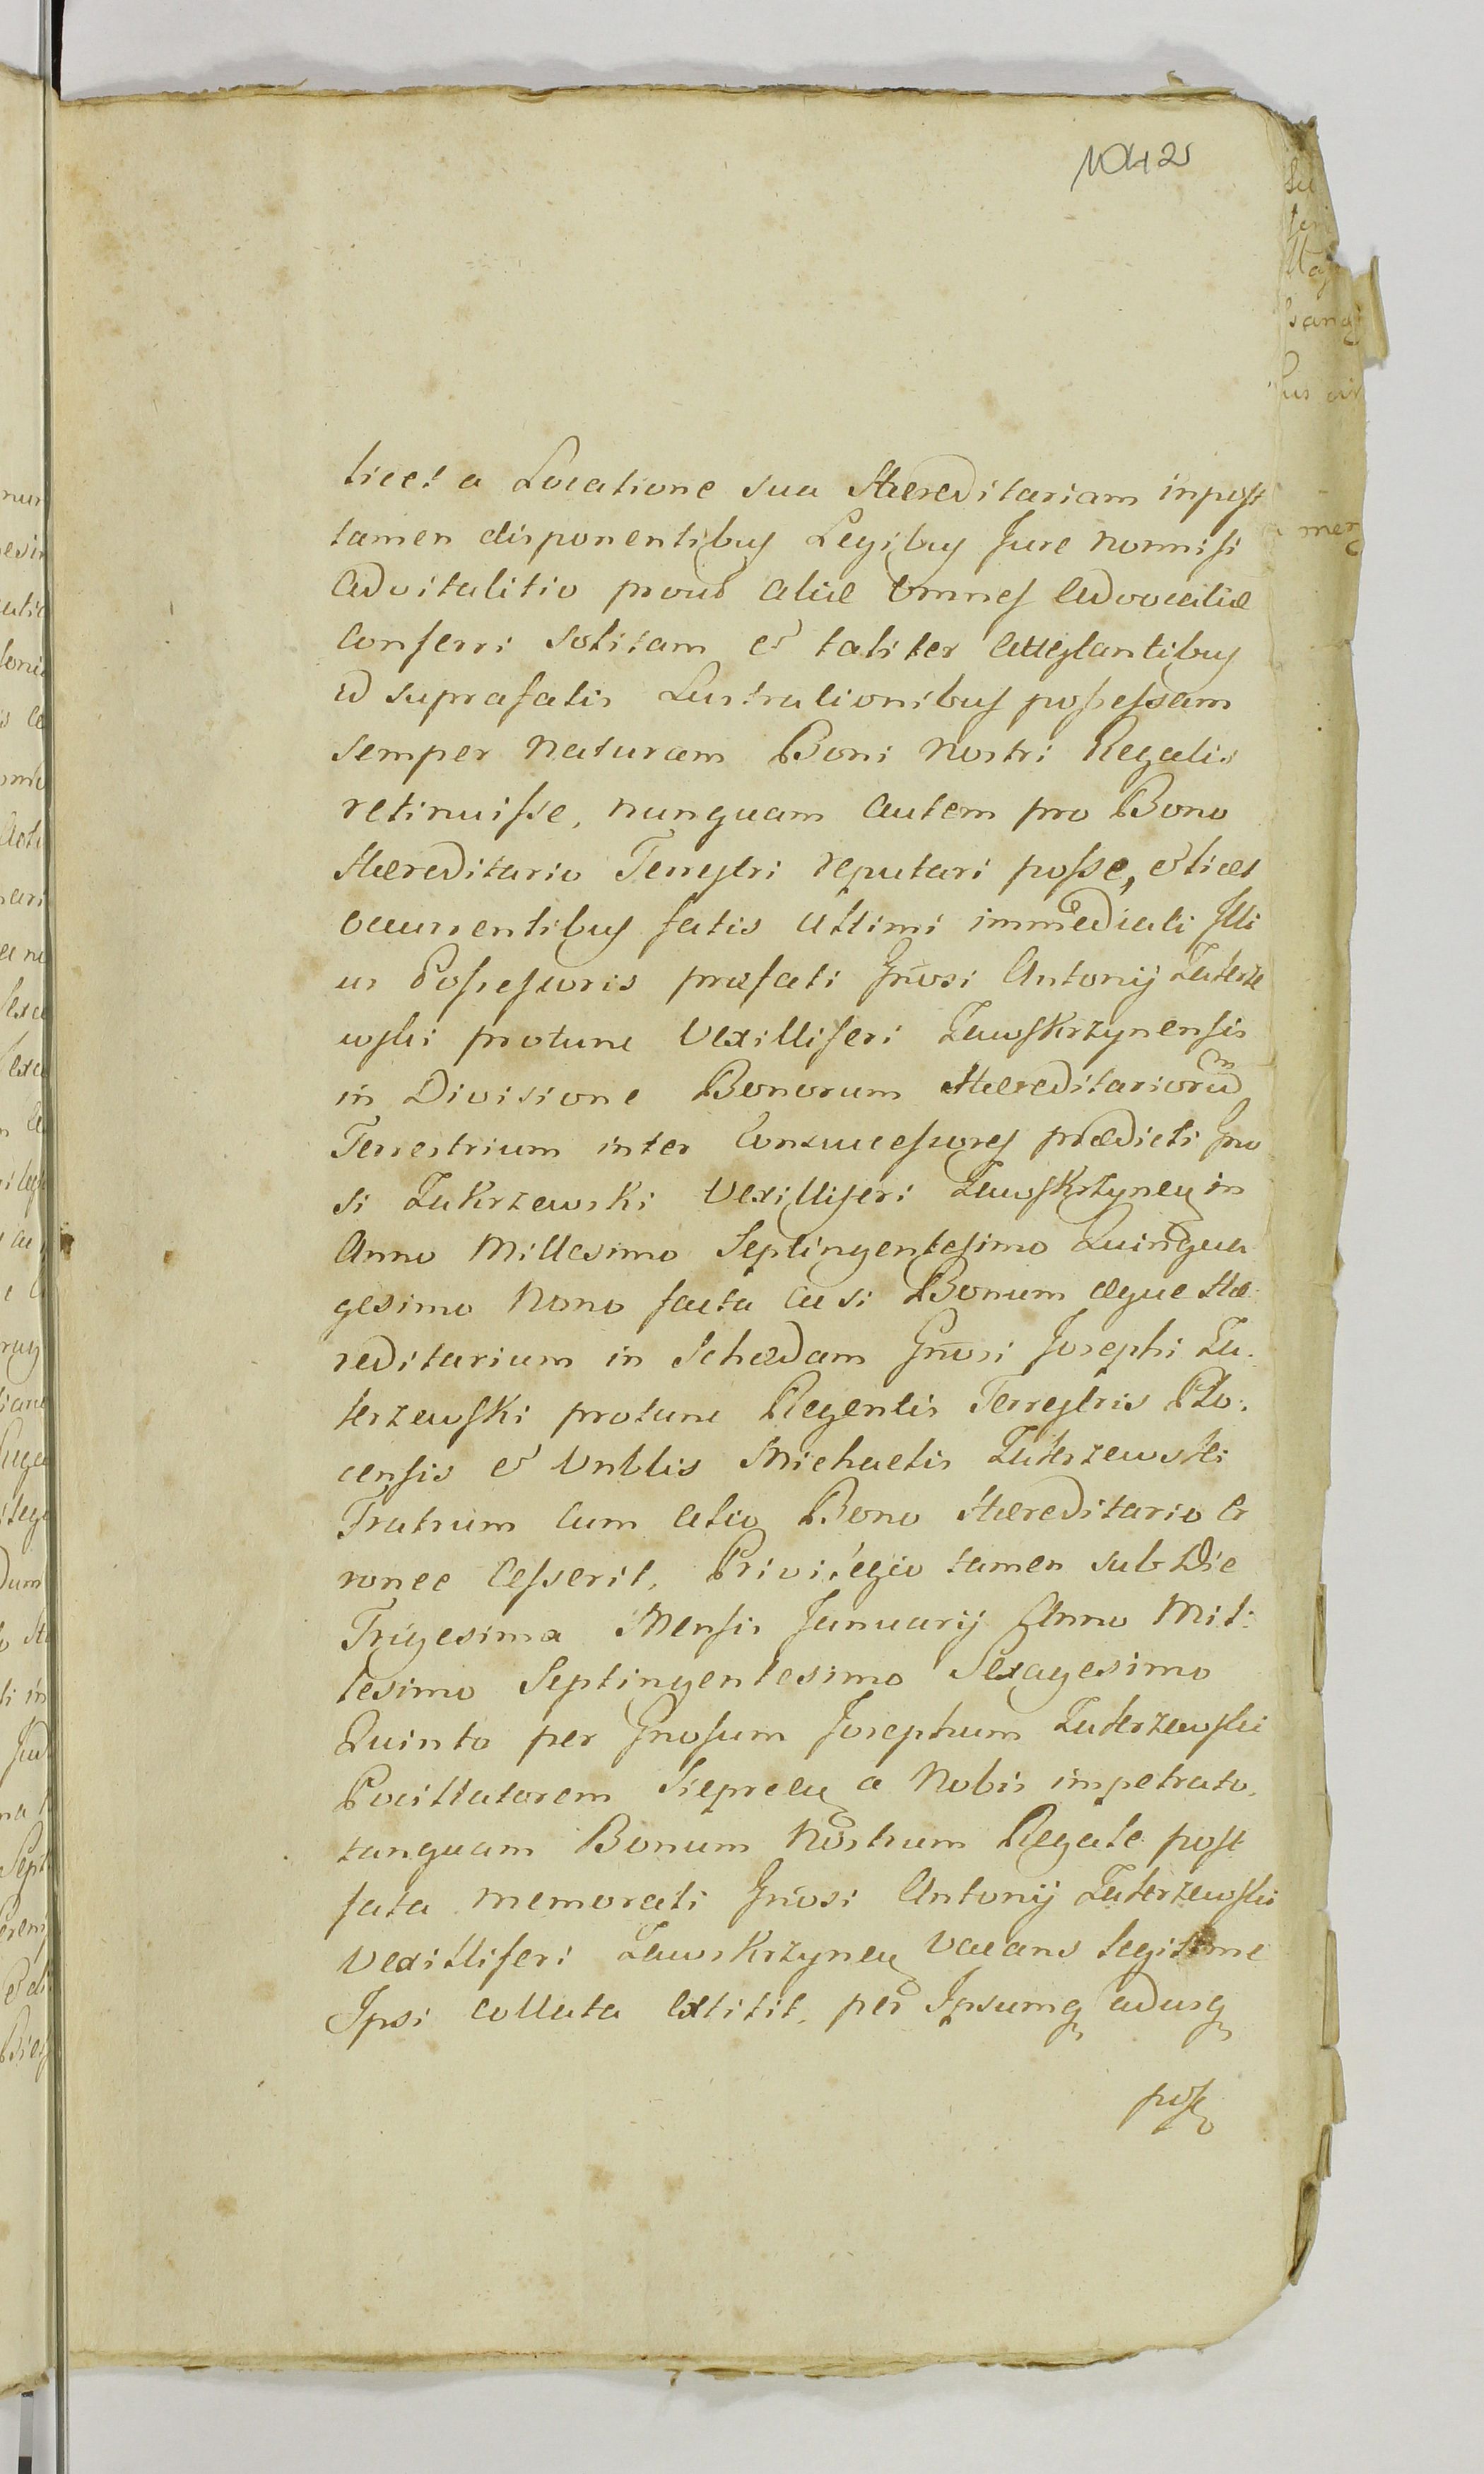 1042
licet a Locatione sua Hæreditariam inpost
tamen disponentibus Legibus Jure nonnisi
Advitalitio prout aliæ omnes Advocatiæ
Conferri Solitam et taliter attestantibus
id suprafatis Lustrationibus possessam
semper Naturam Boni Nostri Regalis
retinuisse, nunquam autem pro Bono
Hæreditario Terrestri reputari posse, et licet
occurrentibus fatis Ultimi immediati Illi
us Possessoris præfati Gnosi Antonij Zakrze
wski protunc Vexilliferi Zawskrzynensis
in Divisione Bonorum Hæreditariorum
Terrestrium inter Consuccessores prædicti Gno
si Zakrzewski Vexilliferi Zawskrzynen in
Anno Millesimo Septingentesimo Quinqua
gesimo Nono facta ac si Bonum æque Hæ
reditarium in Schedam Gnosi Josephi Za.
krzewski protunc Regentis Terrestris Plo.
censis et Unblis Michaelis Zakrzewski
Fratrum cum alio Bono Hæreditario er
ronee Cesserit, Privilegio tamen sub Die
Trigesima Mensis Januarij Anno Mil:
lesimo Septingentesimo Sexagesimo
Quinto per Gnosum Josephum Zakrzewski
Pocillatorem Sieprcen a Nobis impetrato,
tanquam Bonum Nostrum Regale post
fata memorati Gnosi Antonij Zakrzewski
Vexilliferi Zawskrzynen Vacans legitime
Ipsi collata extitit, per Ipsumq adusq
poss